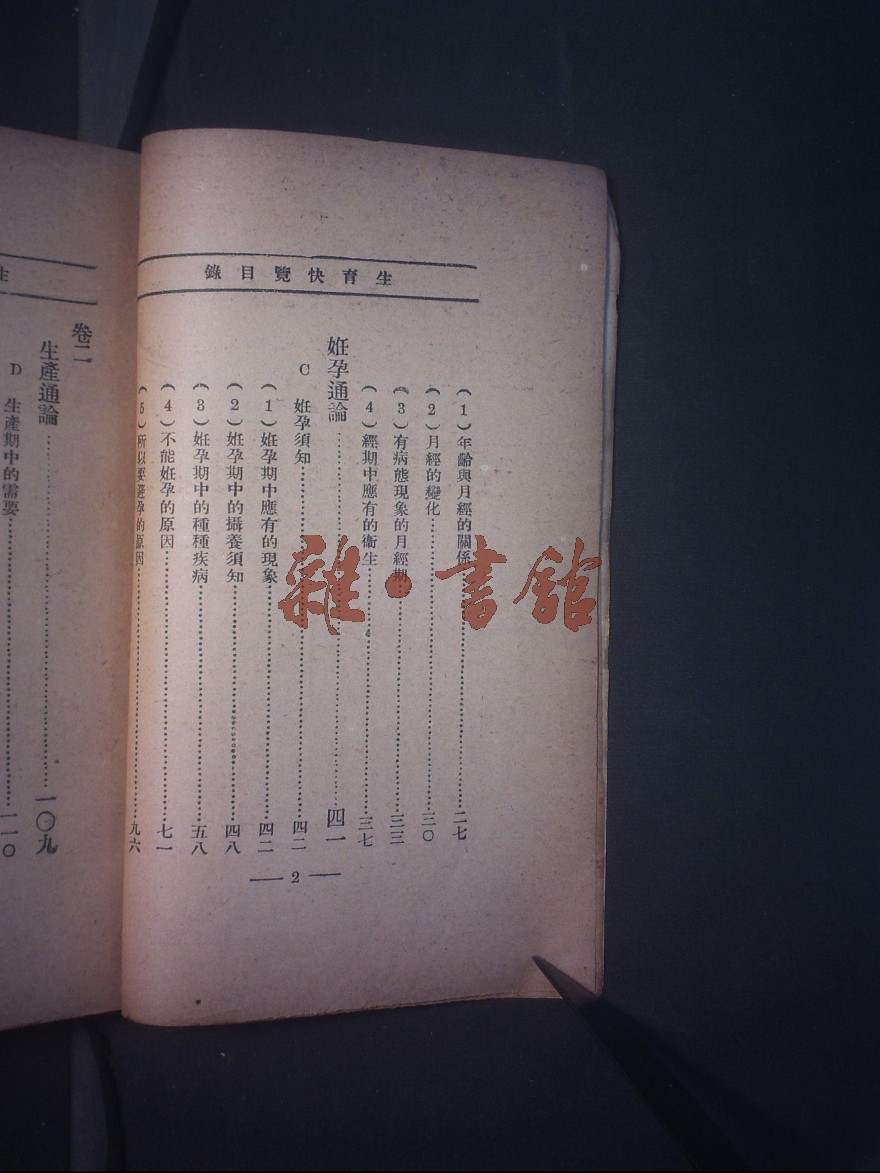 生育快覽目錄
(1)年齡與月經的關係……二七
(2)月經的變化……三〇
(3)有病態現象的月經期……三三
(4)經期中應有的衞生……三七
姙孕通論……四一
C 姙孕須知……四二
(1)姙孕期中應有的現象……四二
(2)姙孕期中的攝養須知……四八
(3)姙孕期中的種種疾病……五八
(4)不能姙孕的原因……七一
(5)所以要避孕的原因……九六
— 2 —
生
卷二
生產通論……一〇九
D 生產期中的需要……一一〇
雜·書館